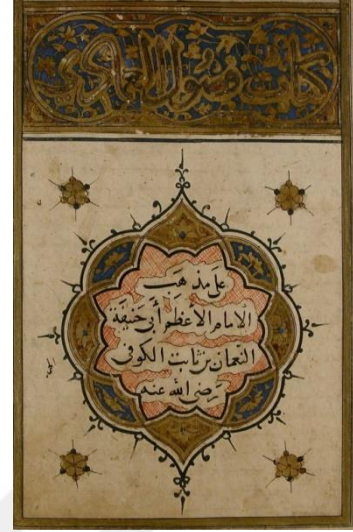 كتاب فصول العمادي
على مذهب
الامام الأعظم أبي حنيفة
النعمان بن ثابت الكوفي
رضي الله عنه